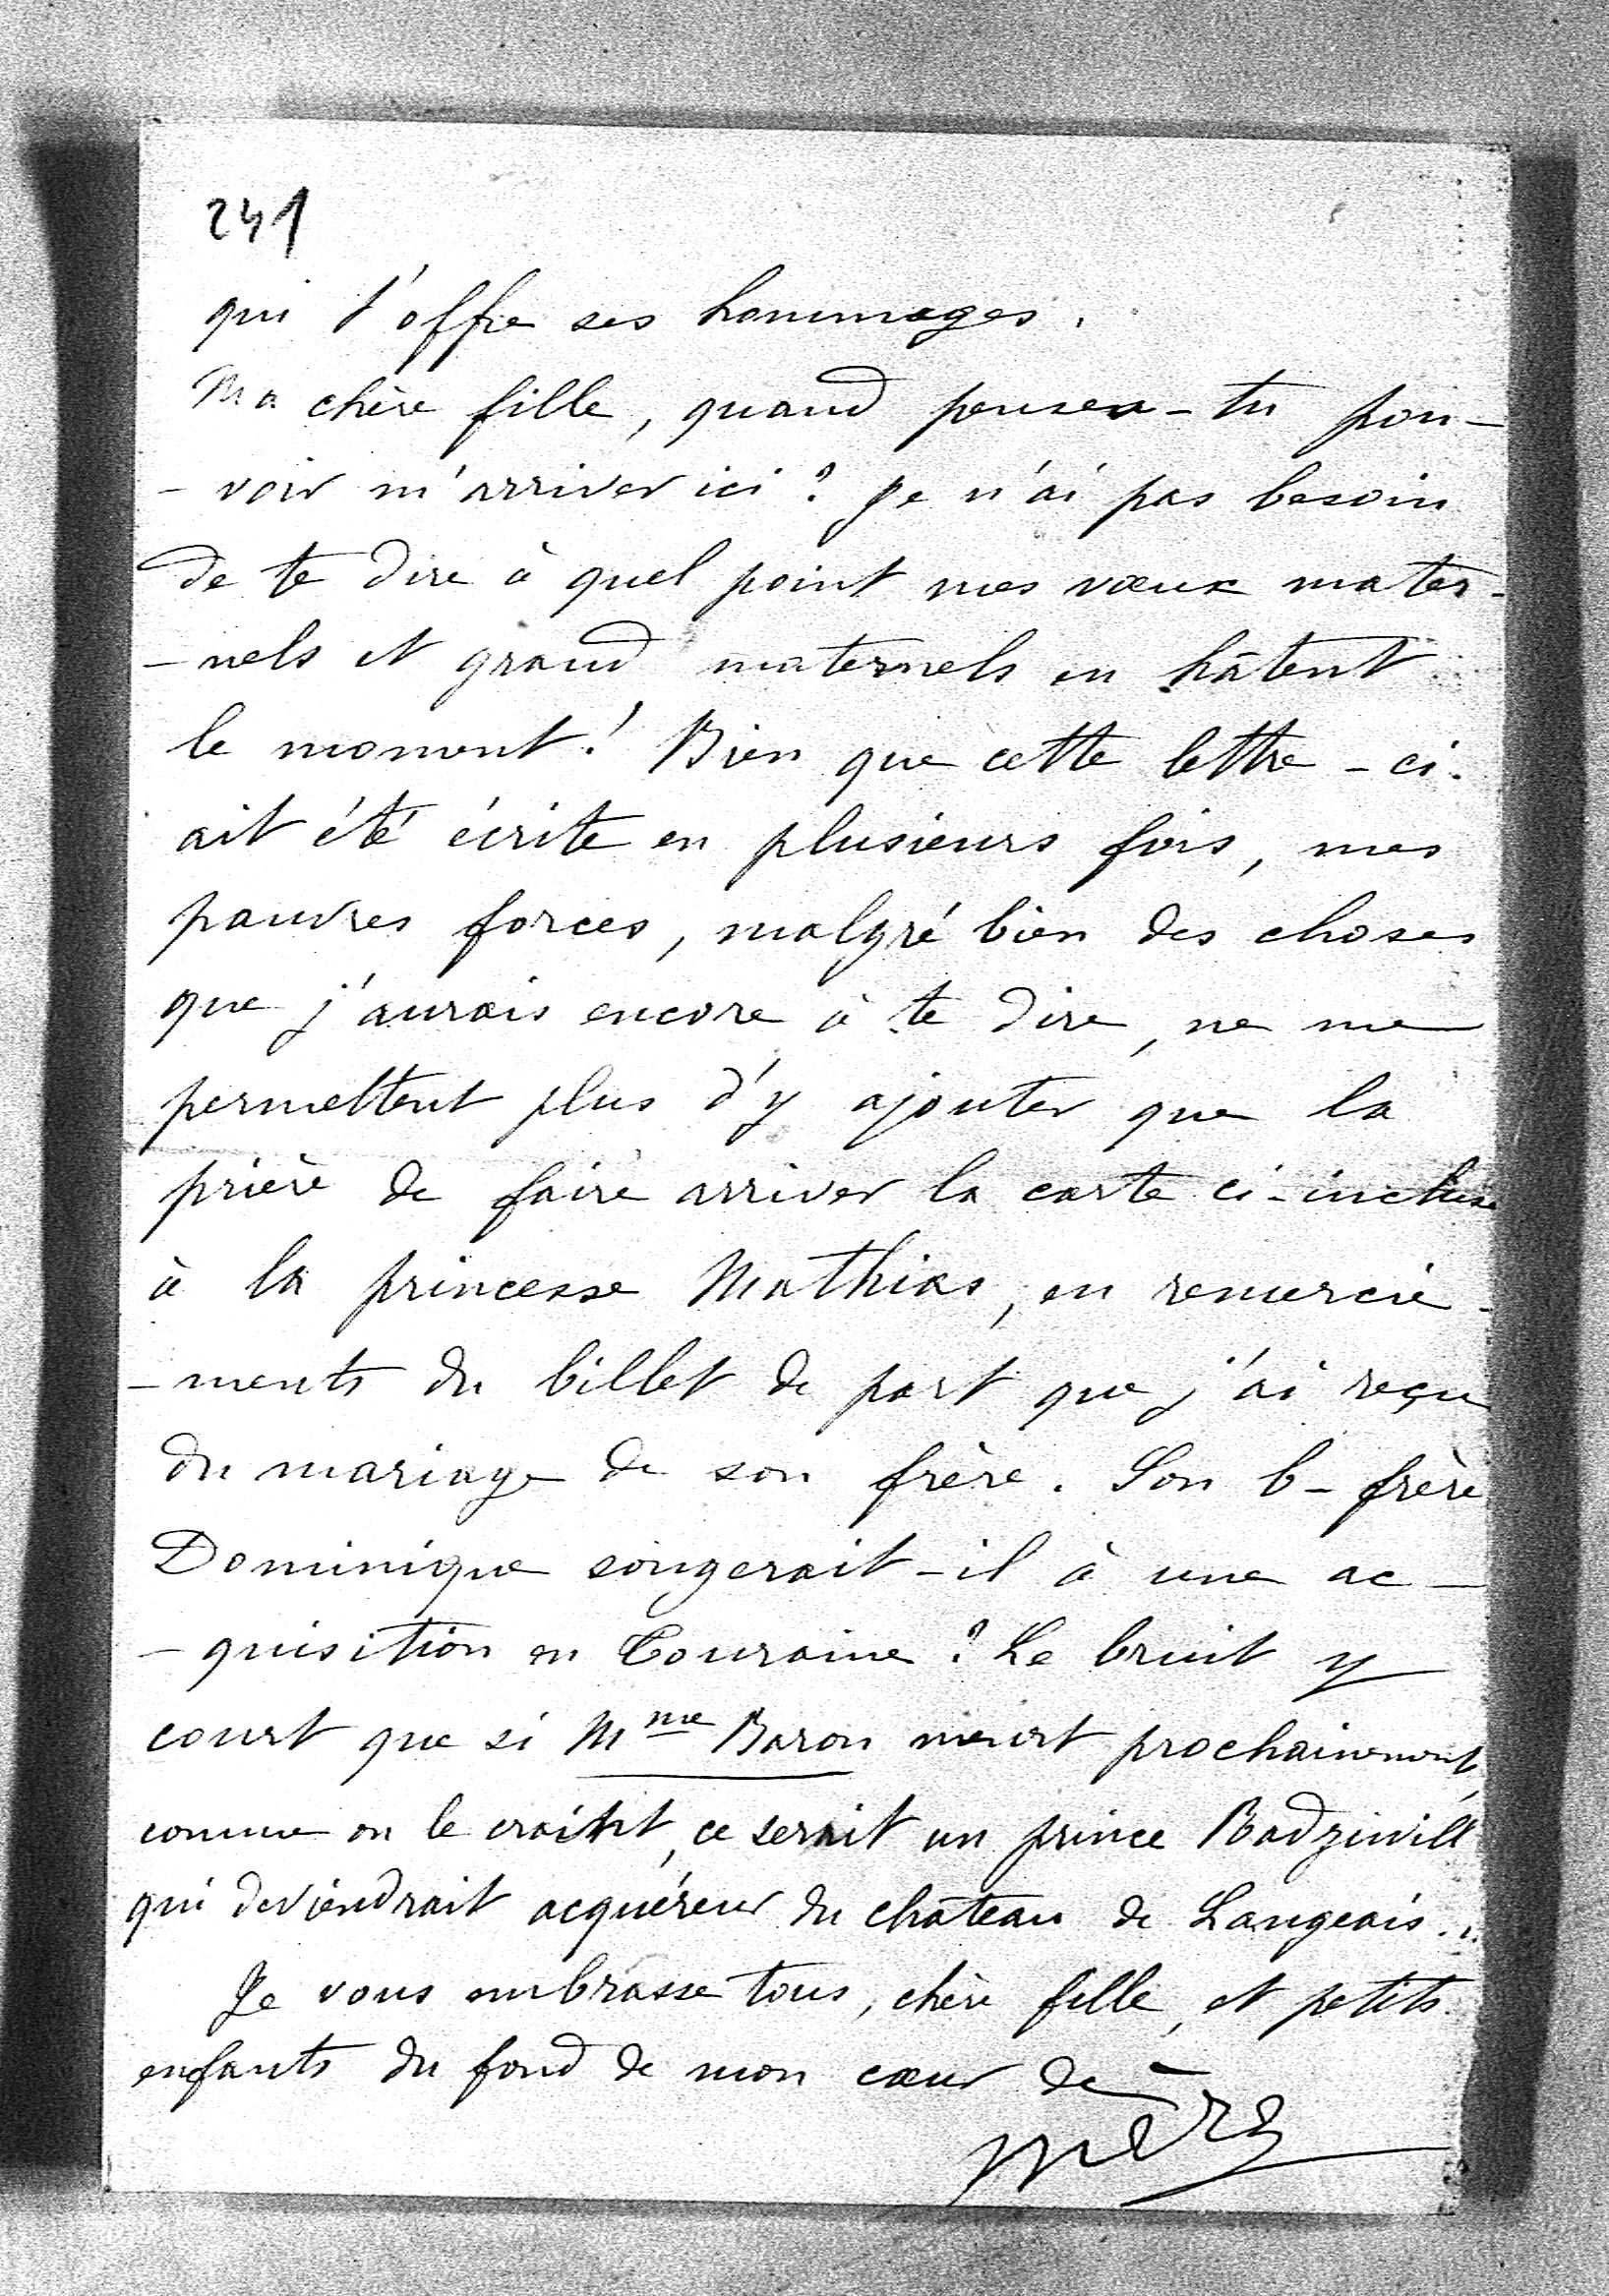 241
qui t'offre ses hommages.
Ma chère fille, quand penses-tu pou-
-voir m'arriver ici ? Je n'ai pas besoin
de te dire à quel point mes vœux mater-
-nels et grand maternels en hâtent
le moment ! Bien que cette lettre-ci
ait été écrite en plusieurs fois, mes
pauvres forces, malgré bien des choses
que j'aurais encore à te dire, ne me
permettent plus d'y ajouter que la
prière de faire arriver la carte ci-incluse
à la princesse Mathias, en remercie-
-ments du billet de part que j'ai reçu
du mariage de son frère. Son b-frère
Dominique songerait-il à une ac-
-quisition en Touraine ? Le bruit y
court que si Mme Baron meurt prochainement,
comme on le croit, ce serait un prince Radziwill
qui deviendrait acquéreur du château de Langeais...
Je vous embrasse tous, chère fille, et petits
enfants du fond de mon cœur de
mère